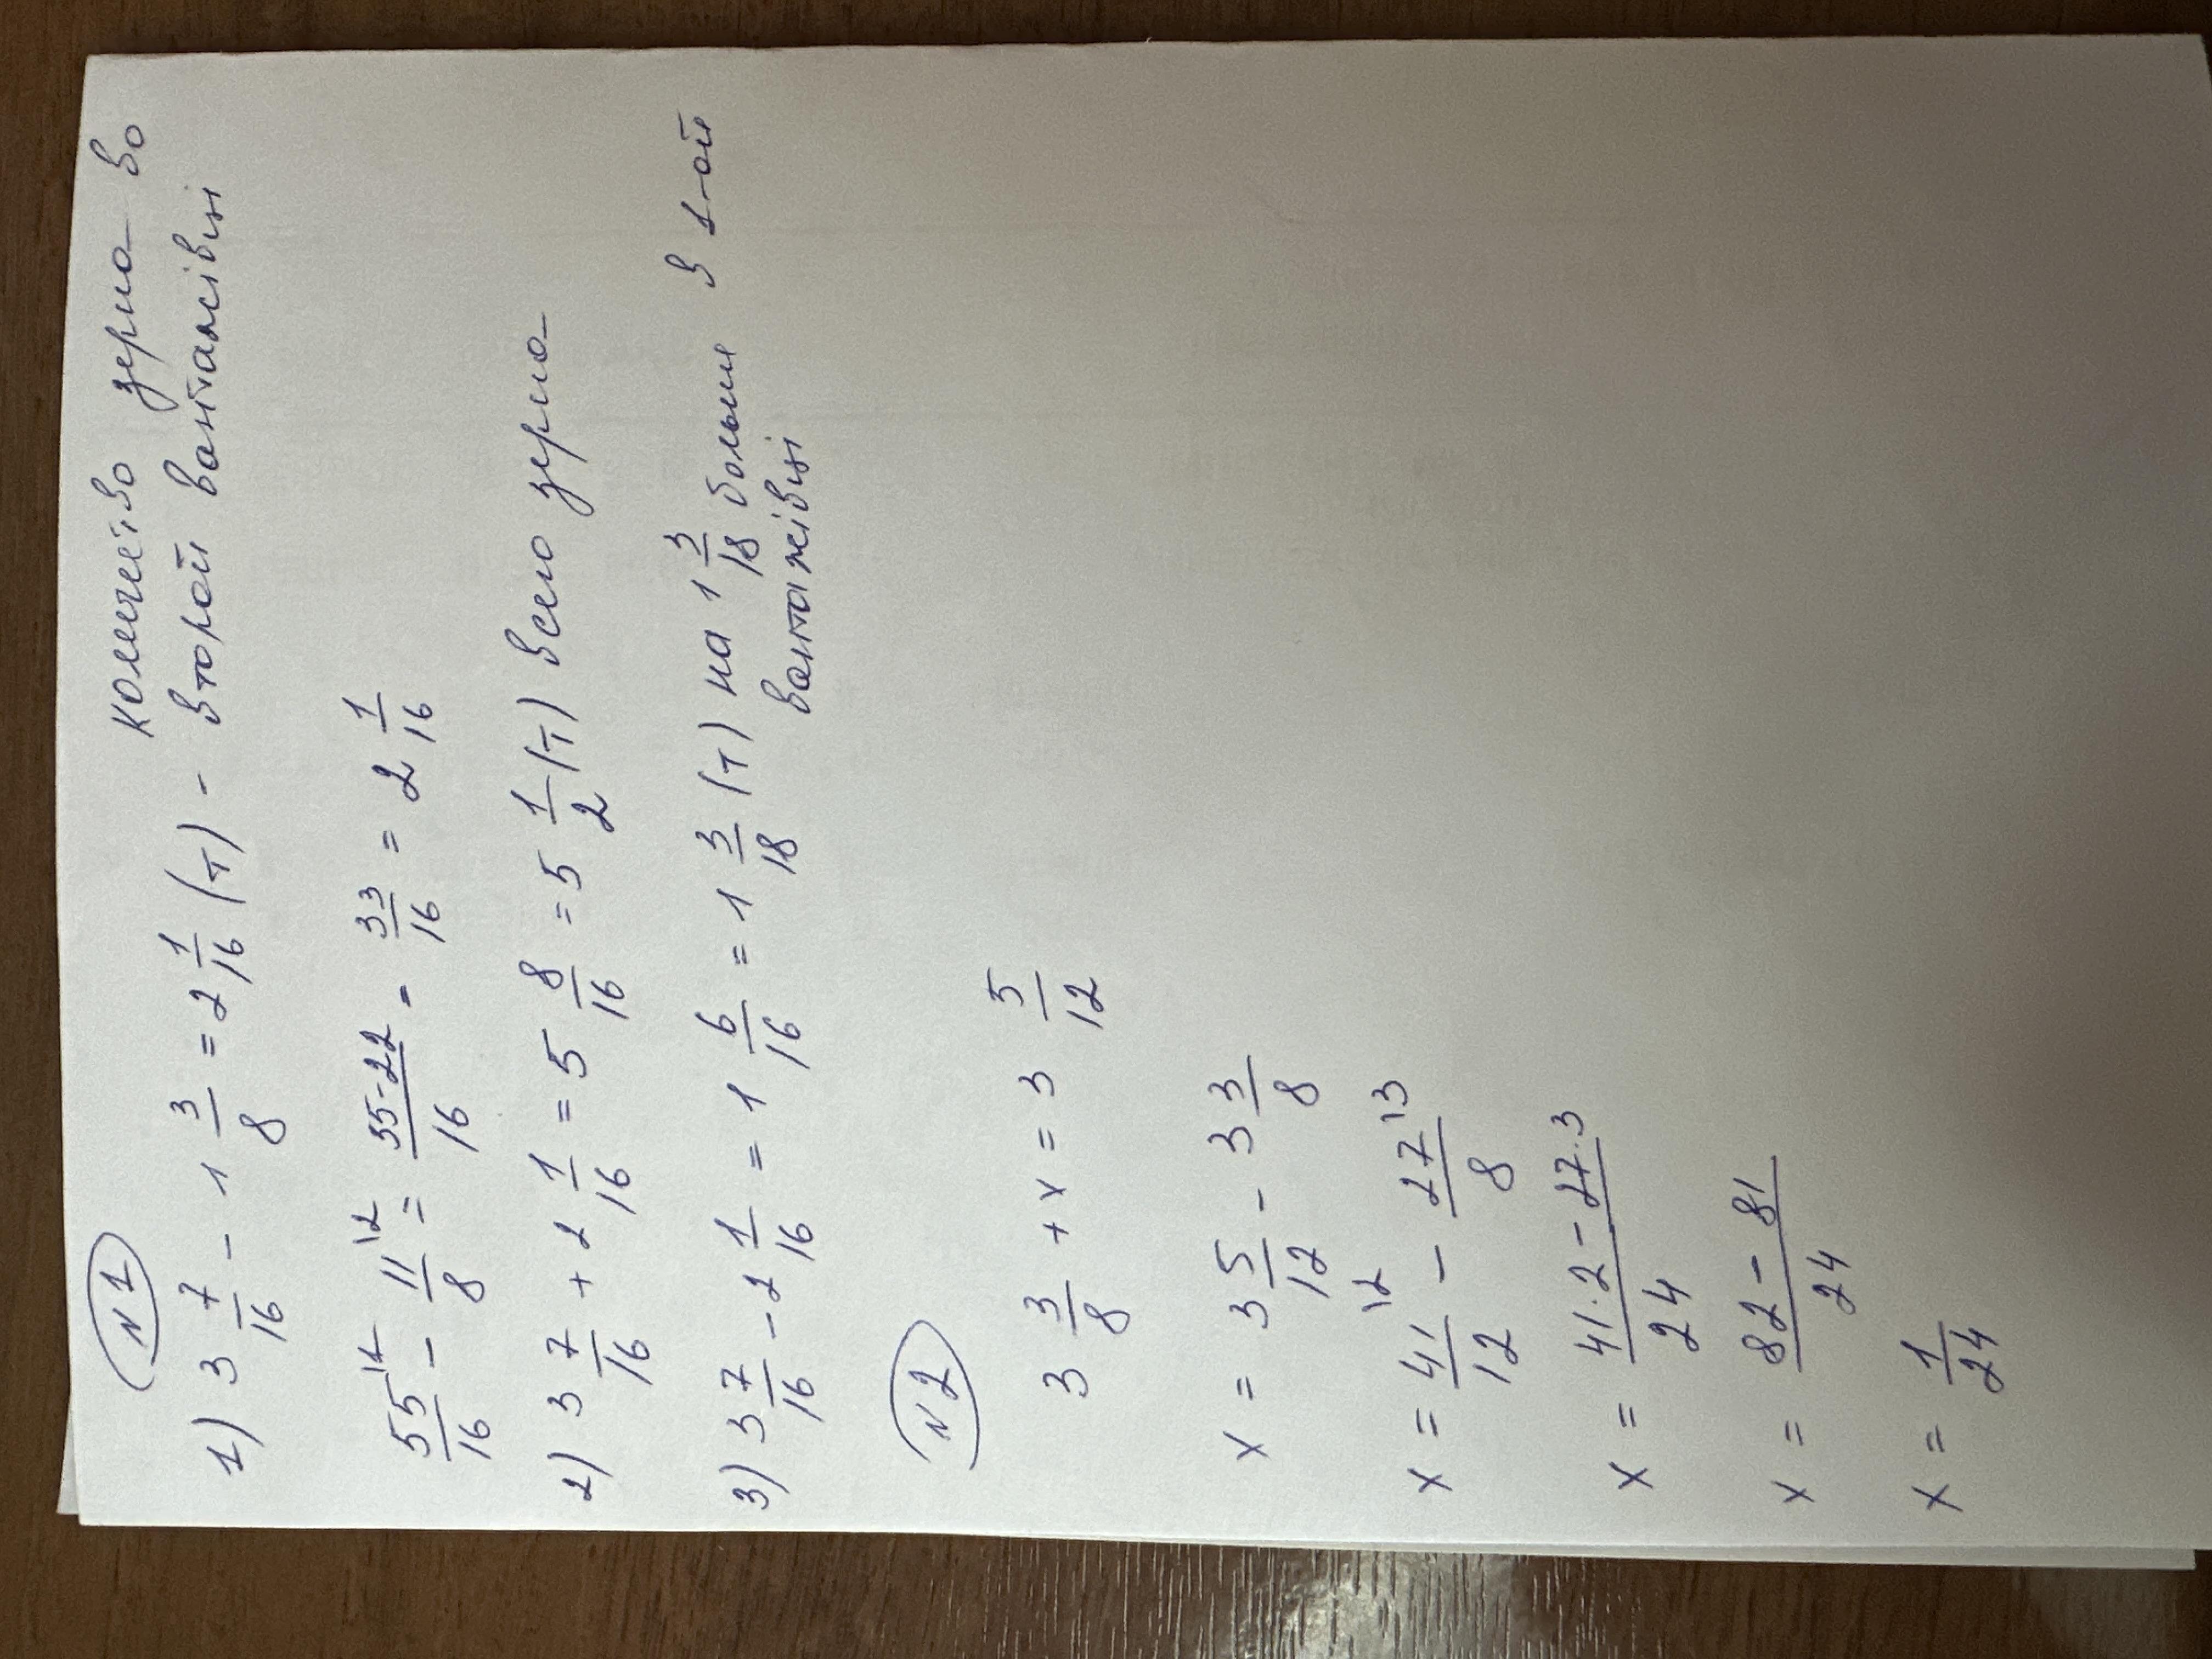 N1
1) 3 7/16 - 1 3/8 = 2 1/16 (т) - количество зерна во
второй вантажівці
55/16 \1 - 11/8 \2 = 55-22/16 = 33/16 = 2 1/16
2) 3 7/16 + 2 1/16 = 5 8/16 = 5 1/2 (т) всего зерна
3) 3 7/16 - 2 1/16 = 1 6/16 = 1 3/18 (т) на 1 3/18 больше в 1-ой
вантажівці
N2
3 3/8 + x = 3 5/12
x = 3 5/12 - 3 3/8
x = 41/12 \2 - 27/8 \3
x = 41·2 - 27·3/24
x = 82 - 81/24
x = 1/24